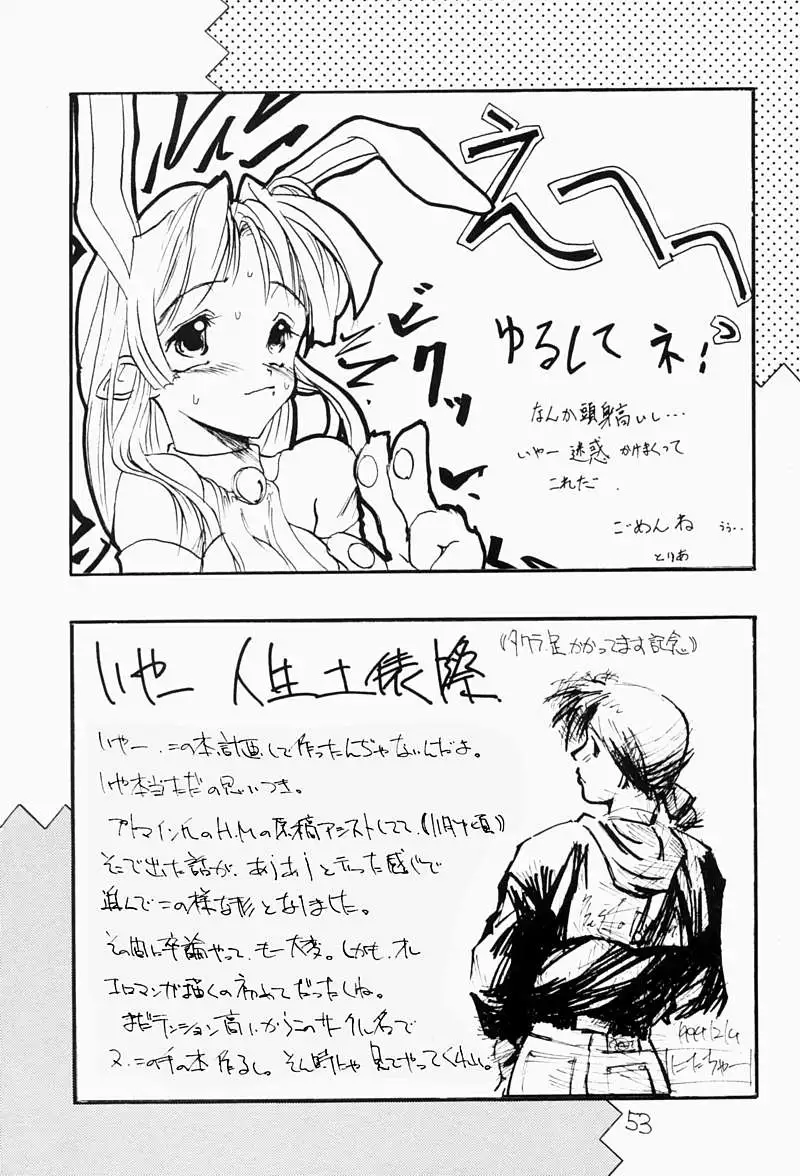 え〜っ
ビクッ
ゆるしてネ!
なんか頭身高いし…
いやー迷惑かけまくって
これだ.
ごめんね ぅぅ..
とりあ
いやー 人生土俵際
《タクラ足かかってます記念》
いやー.この本計画して作ったんぢゃないんだよ。
いや本当ただの思いつき。
アトマイン氏のH.Mの原稿アシストしてて、《11月頃》
そこで出た話が、あうあうと言った感じで
進んでこの様な形となりました。
その間に卒論やって、もー大変。しかも、オレ
エロマンガ描くの初めてだったしね。
まだテンション高いからこのサークル名で
又、この手の本作るし。そん時にゃ見てやってくれい。
にたちゃー
53